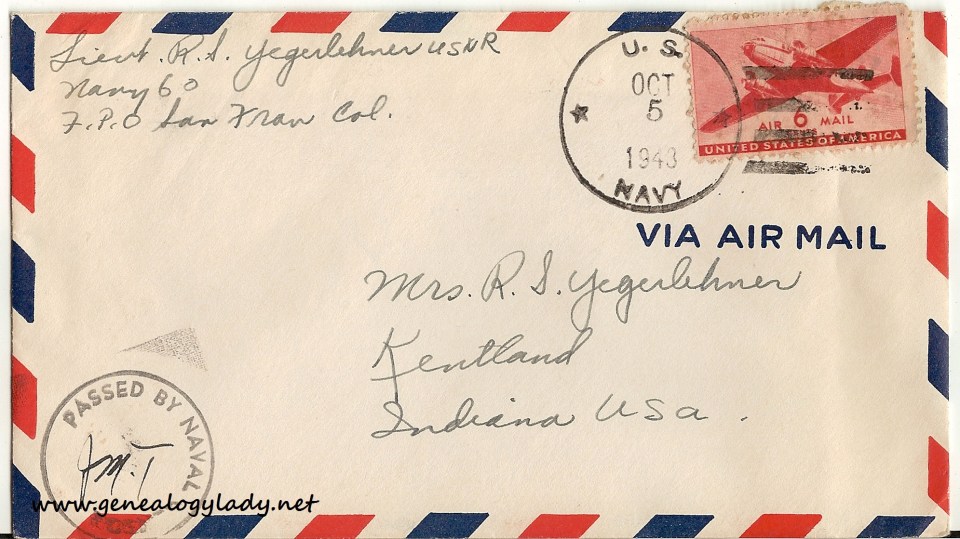 Lieut. R. S. Yegerlehner USNR
Navy 60
F.P.O San Fran Cal.
U. S.
OCT
5
1943
NAVY
AIR 6 MAIL
UNITED STATES OF AMERICA
VIA AIR MAIL
Mrs. R. S. Yegerlehner
Kentland
Indiana USA.
PASSED BY NAVAL
J.M.T
www.genealogylady.net